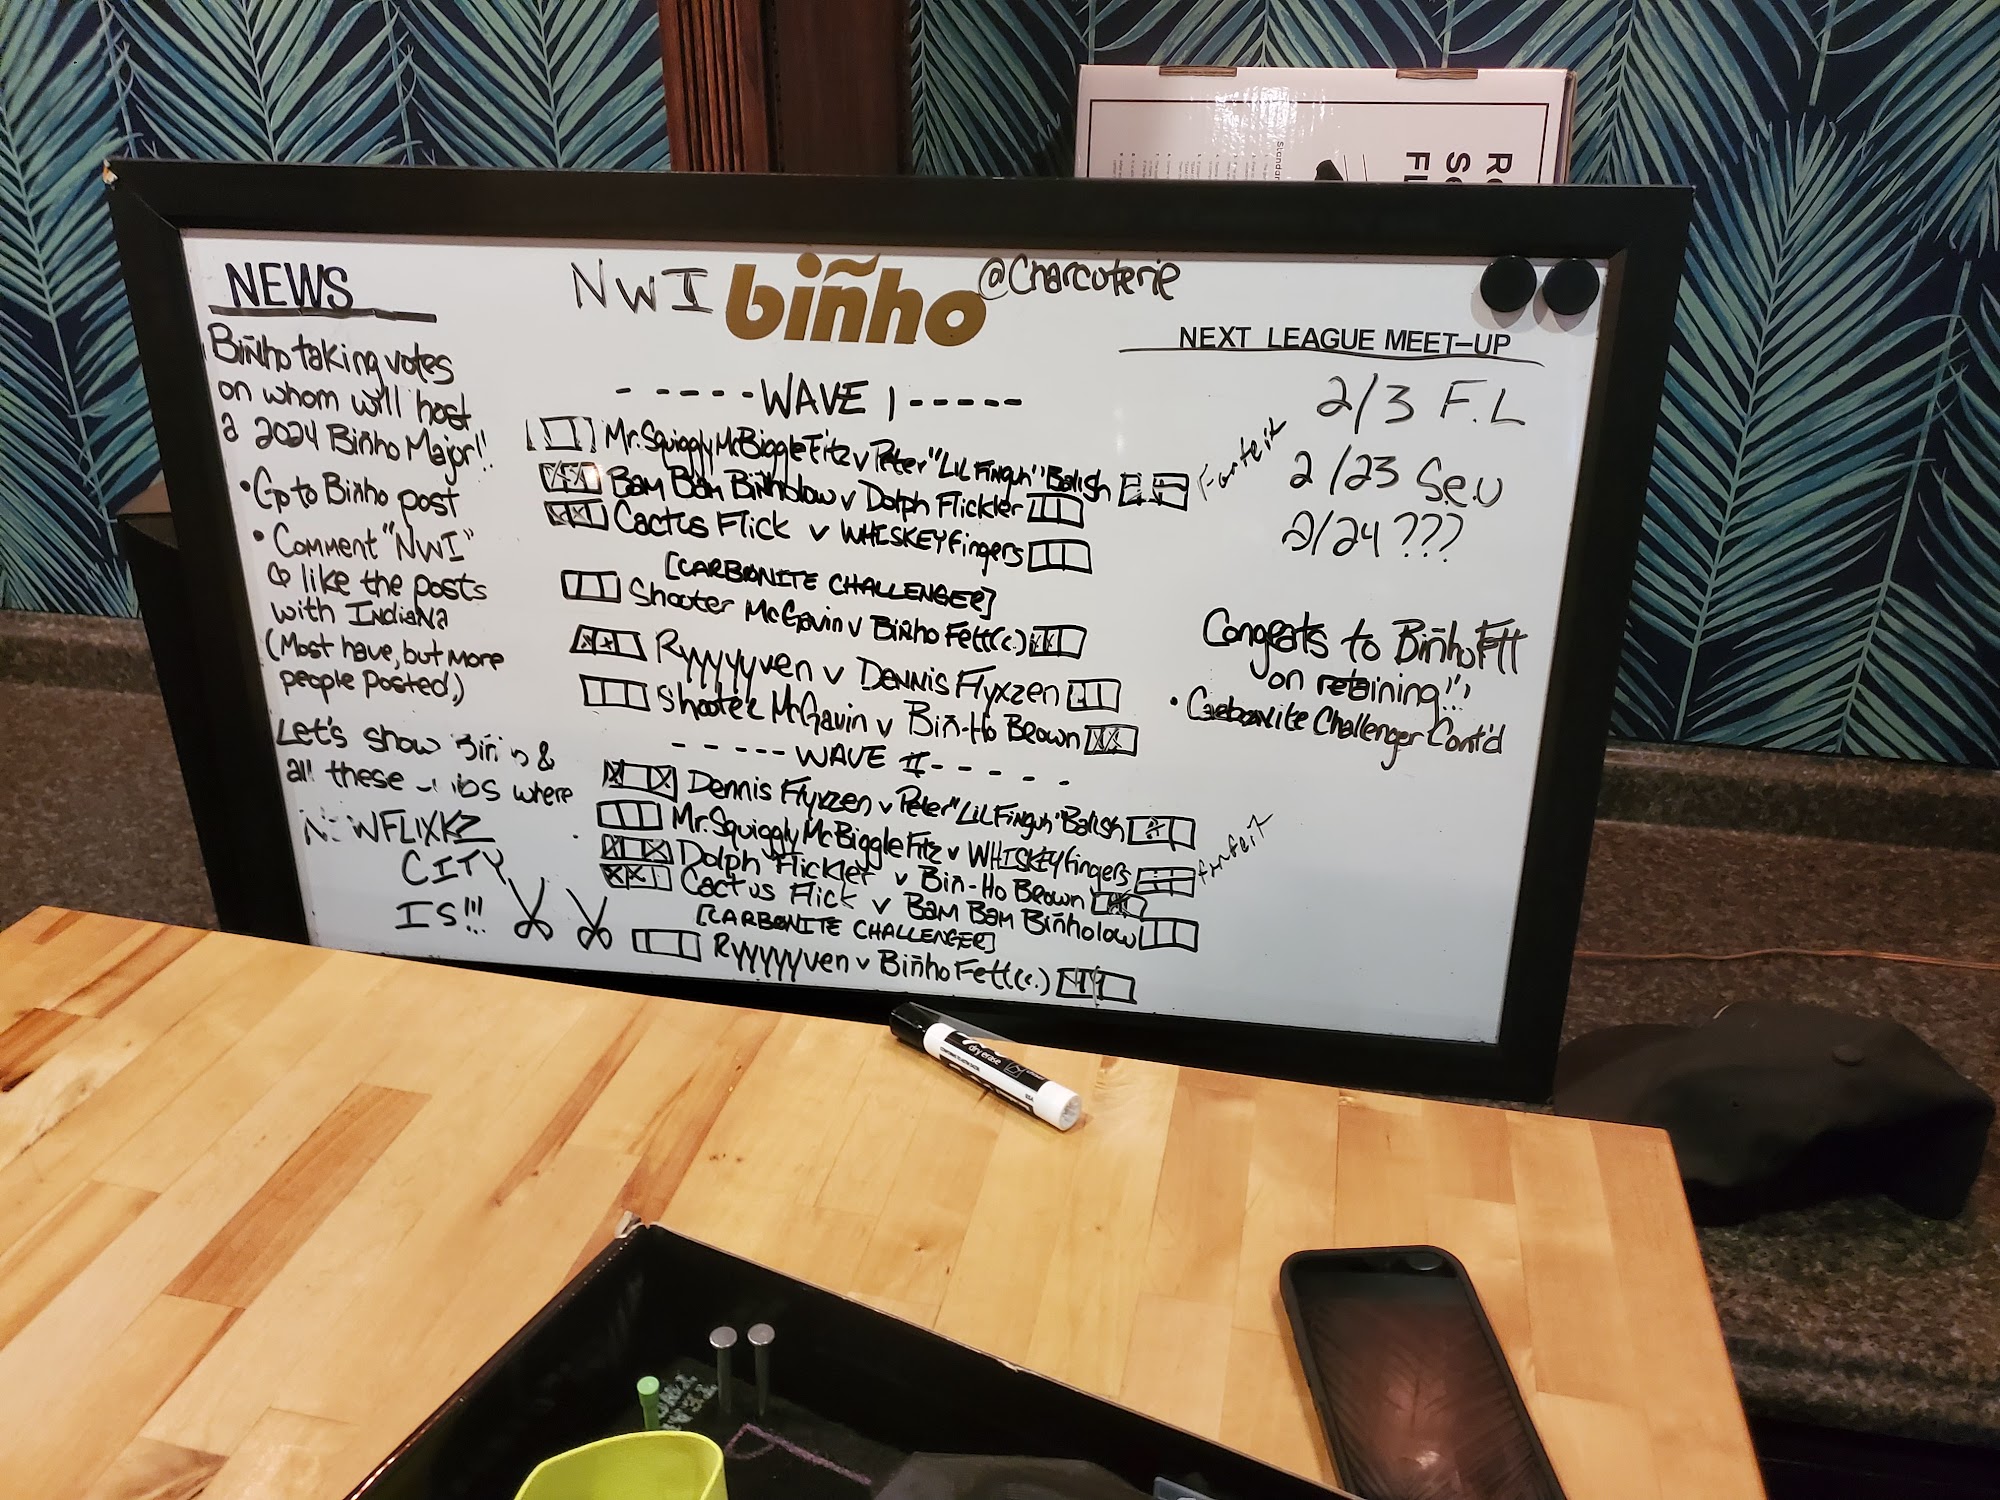 NEWS
Biñho taking votes
on whom will host
a 2024 Biñho Major!!
• Go to Biñho post
• Comment "NWI"
like the posts
with Indiana
(Most have, but more
people posted.)
Let's show &
all these where
NEWFLIXKZ
CITY
IS!!!
NWI biñho @Charcuterie
-----WAVE I-----
Mr. Squiggly McBiggleFitz v Peter "Lil Finguh" Balish Forfeit
Bam Bam Biñholow v Dolph Flickler
Cactus Flick v WHISKEYfingers
[CARBONITE CHALLENGER]
Shooter McGavin v Biñho Fett(c.)
Ryyyyyven v Dennis Flyxzen
Shooter McGavin v Biñ-Ho Brown
-----WAVE II-----
Dennis Flyxzen v Peter "Lil Finguh" Balish
Mr. Squiggly McBiggleFitz v WHISKEYfingers forfeit
Dolph Flickler v Biñ-Ho Brown
Cactus Flick v Bam Bam Biñholow
[CARBONITE CHALLENGER]
Ryyyyyven v Biñho Fett(c.)
NEXT LEAGUE MEET-UP
2/3 F.L
2/23 S.e.U
2/24 ???
Congrats to Biñho Fett
on retaining!!!
• Carbonite Challenger Cont'd
dry erase